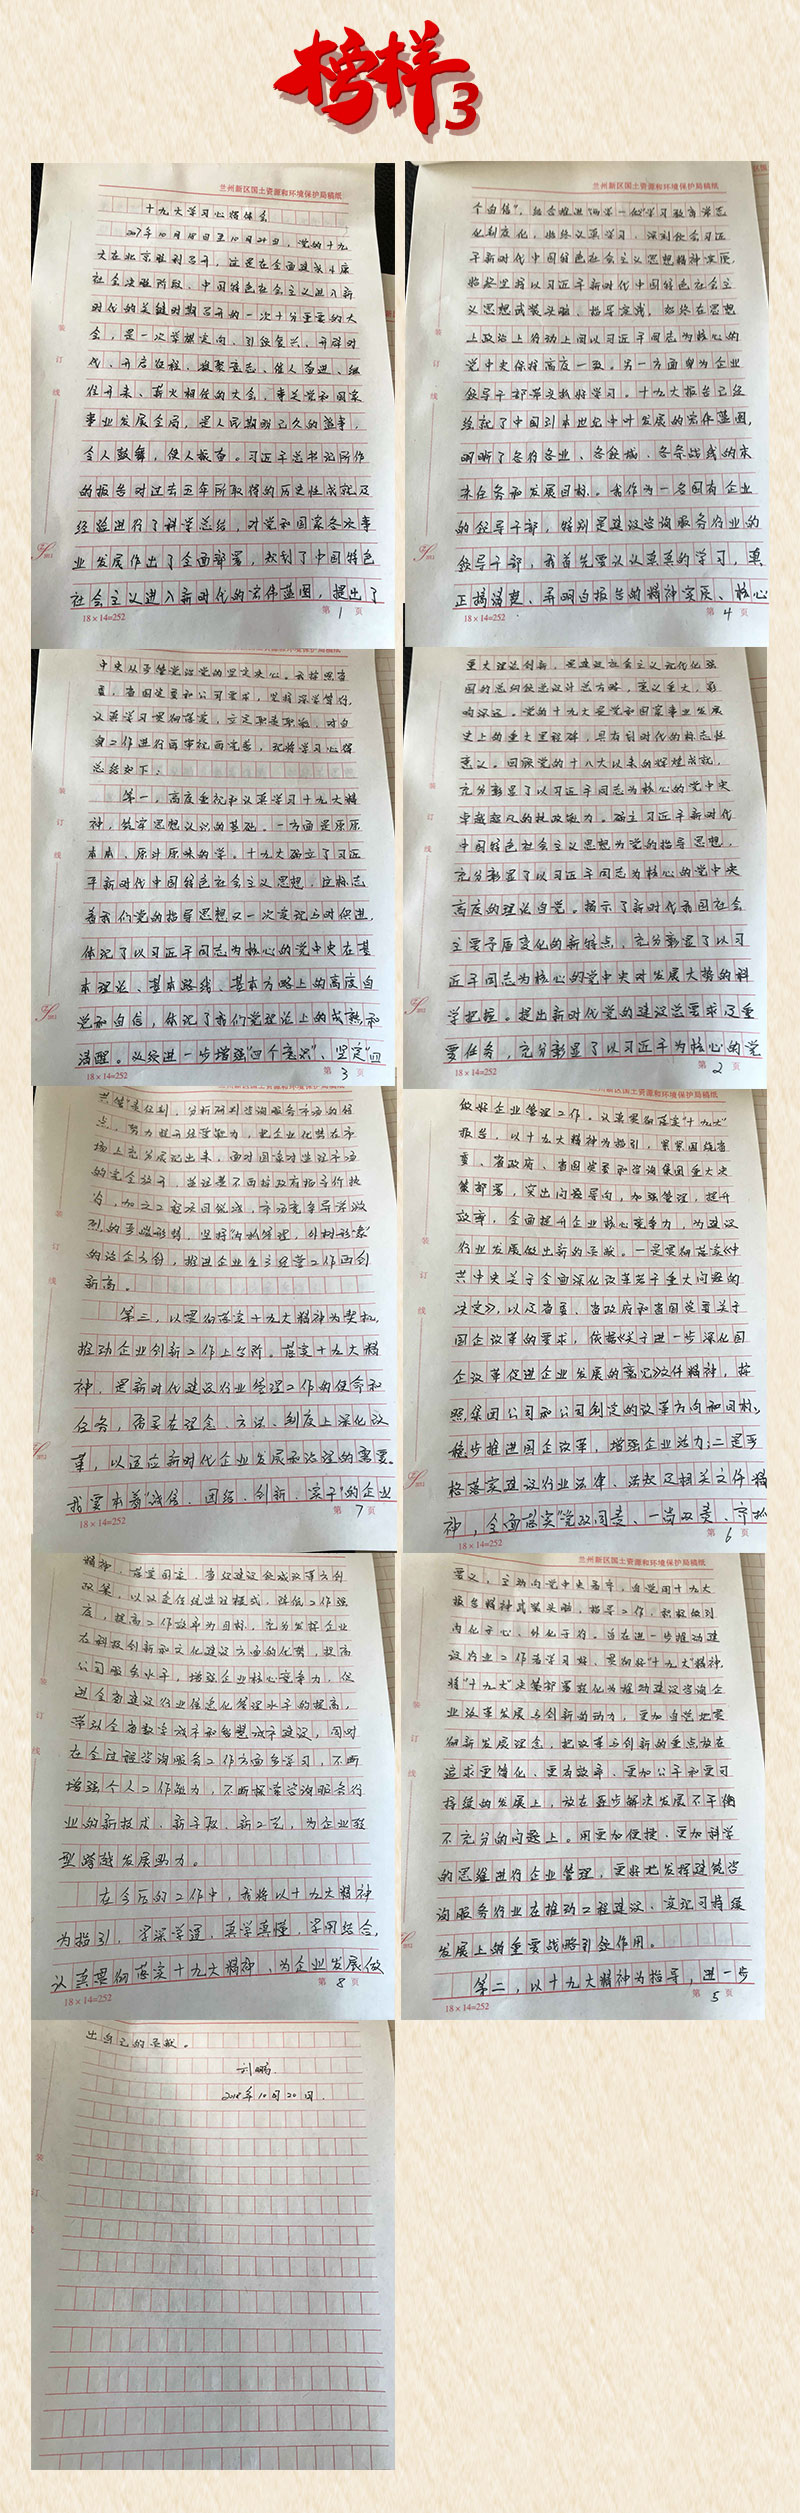 榜样3
兰州新区国土资源和环境保护局稿纸
十九大学习心得体会
2017年10月18日至10月24日，党的十九
大在北京胜利召开，这是在全面建成小康
社会决胜阶段、中国特色社会主义进入新
时代的关键时期召开的一次十分重要的大
会，是一次举旗定向、引领复兴、开辟时
代、开启征程、凝聚意志、催人奋进、继
往开来、薪火相传的大会，事关党和国家
事业发展全局，是人民期盼已久的盛事，
令人鼓舞，使人振奋。习近平总书记所作
的报告对过去五年所取得的历史性成就及
经验进行了科学总结，对党和国家各项事
业发展作出了全面部署，规划了中国特色
社会主义进入新时代的宏伟蓝图，提出了
18×14=252
第 1 页
兰州新区国土资源和环境保护局稿纸
个自信"，结合推进"两学一做"学习教育常态
化制度化，始终认真学习，深刻领会习近
平新时代中国特色社会主义思想精神实质，
始终坚持以习近平新时代中国特色社会主
义思想武装头脑、指导实践，始终在思想
上政治上行动上同以习近平同志为核心的
党中央保持高度一致。另一方面是为企业
领导干部带头抓好学习。十九大报告已经
绘就了中国到本世纪中叶发展的宏伟蓝图，
明晰了各行各业、各领域、各条战线的未
来任务和发展目标。我作为一名国有企业
的领导干部，特别是建设咨询服务行业的
领导干部，我首先要认认真真的学习，真
正搞清楚、弄明白报告的精神实质、核心
18×14=252
第 4 页
中央从严管党治党的坚定决心。我按照省
委、省国资委和公司要求，坚持深学笃行，
认真学习贯彻落实，立足职责职能，对自
身工作进行再审视再完善，现将学习心得
总结如下：
第一，高度重视和认真学习十九大精
神，筑牢思想认识的基础。一方面是原原
本本、原汁原味的学。十九大确立了习近
平新时代中国特色社会主义思想，这标志
着我们党的指导思想又一次实现与时俱进，
体现了以习近平同志为核心的党中央在基
本理论、基本路线、基本方略上的高度自
觉和自信，体现了我们党理论上的成熟和
清醒。必须进一步增强"四个意识"、坚定"四
18×14=252
第 3 页
重大理论创新，是建设社会主义现代化强
国的总纲领总设计总方略，意义重大，影
响深远。党的十九大是党和国家事业发展
史上的重大里程碑，具有划时代的标志性
意义。回顾党的十八大以来的辉煌成就，
充分彰显了以习近平同志为核心的党中央
卓越超凡的执政能力。确立习近平新时代
中国特色社会主义思想为党的指导思想，
充分彰显了以习近平同志为核心的党中央
高度的理论自觉。揭示了新时代我国社会
主要矛盾变化的新特点，充分彰显了以习
近平同志为核心的党中央对发展大势的科
学把握。提出新时代党的建设总要求及重
要任务，充分彰显了以习近平为核心的党
18×14=252
第 2 页
分析研判咨询服务市场的特
点，努力提升经营能力，把企业优势在市
场上充分展现出来，面对国家对监理市场
的完全放开，
为，加之工程项目锐减，市场竞争异常激
烈的严峻形势，坚持"内抓管理，外树形象"
的治企方针，推进企业生主经营工作再创
新高。
第三，以贯彻落实十九大精神为契机，
推动企业创新工作上台阶。落实十九大精
神，是新时代建设行业管理工作的使命和
任务，需要在理念、方法、制度上深化改
革，以适应新时代企业发展和治理的需要。
我要本着"诚信、团结、创新、实干"的企业
18×14=252
第 7 页
兰州新区国土资源和环境保护局稿纸
做好企业管理工作。认真贯彻落实"十九大"
报告，以十九大精神为指引，紧紧围绕省
委、省政府、省国资委和咨询集团重大决
策部署，突出问题导向，加强管理，提升
效率，全面提升企业核心竞争力，为建设
行业发展做出新的贡献。一是贯彻落实《中
共中央关于全面深化改革若干重大问题的
决定》，以及省委、省政府和省国资委关于
国企改革的要求，依据《关于进一步深化国
企改革促进企业发展的意见》文件精神，按
照集团公司和公司制定的改革方向和目标，
稳步推进国企改革，增强企业活力；二是严
格落实建设行业法律、法规及相关文件精
神，全面落实"党政同责、一岗双责、齐抓
18×14=252
第 6 页
精神，落实国家、省住建设领域改革方创
政策，以以责任促进过程式，降低工作强
度，提高工作效率为目标，充分发挥企业
在科技创新和文化建设方面的优势，提高
公司服务水平，增强企业核心竞争力，促
进全省建设行业信息化管理水平的提高，
带动全省数字城市和智慧城市建设，同时
在全过程咨询服务工作方面多学习，不断
增强个人工作能力，不断探索咨询服务行
业的新技术、新手段、新工艺，为企业转
型跨越发展助力。
在今后的工作中，我将以十九大精神
为指引，学深学透，真学真懂，学用结合，
认真贯彻落实十九大精神、为企业发展做
18×14=252
第 8 页
兰州新区国土资源和环境保护局稿纸
要义，主动向党中央看齐，自觉用十九大
报告精神武装头脑，指导工作，积极做到
内化于心、外化于行。旨在进一步推动建
设行业工作者学习好、贯彻好"十九大"精神，
将"十九大"决策部署转化为推动建设咨询企
业改革发展与创新的动力，更加自觉地贯
彻新发展理念，把改革与创新的重点放在
追求更简化、更有效率、更加公平和更可
持续的发展上，放在逐步解决发展不平衡
不充分的问题上。用更加便捷、更加科学
的思维进行企业管理，更好地发挥建筑咨
询服务行业在推动工程建设、实现可持续
发展上的重要战略引领作用。
第二，以十九大精神为指导，进一步
18×14=252
第 5 页
出自己的贡献。
刘鹏
2018年10月20日